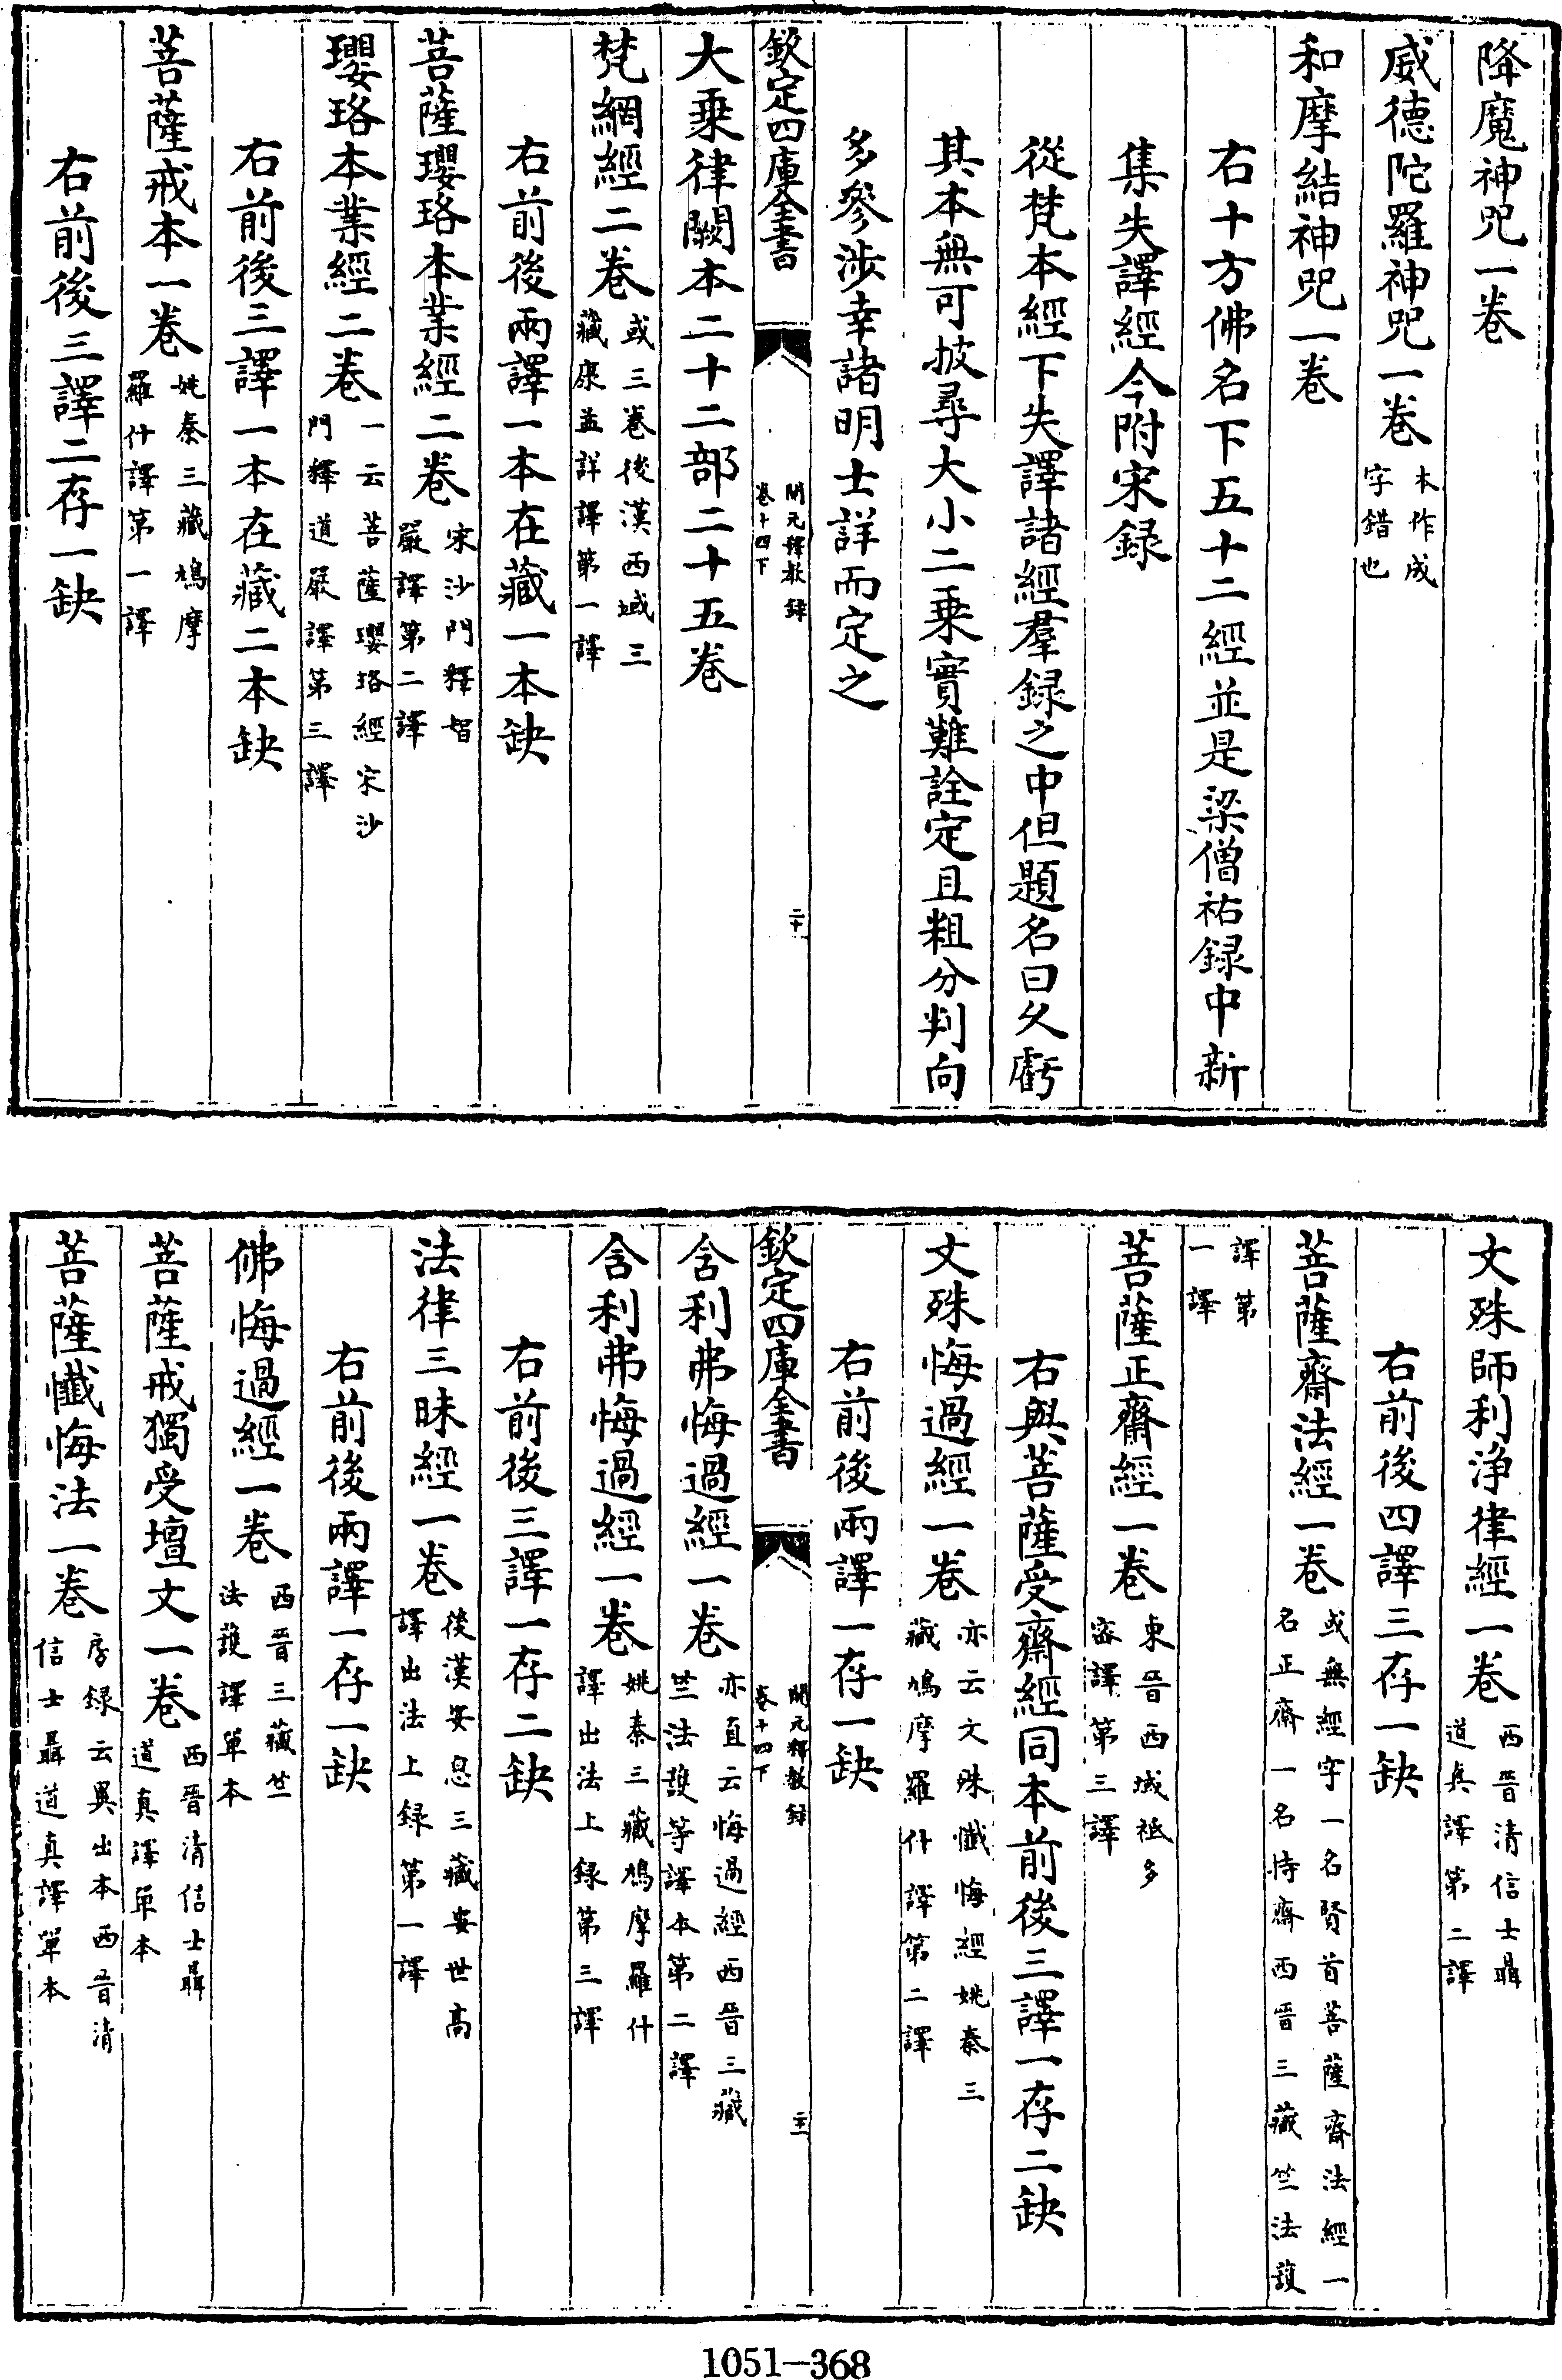 降魔神咒一卷
威德陀羅神咒一卷本作成字錯也
和摩結神咒一卷
右十方佛名下五十二經並是梁僧祐録中新
集失譯經今附宋録
從梵本經下失譯諸經羣録之中但題名曰久虧
其本無可披尋大小二乘實難詮定且粗分判向
多參涉幸諸明士詳而定之
欽定四庫全書 開元釋教録卷十四下 二十
大乘律闕本二十二部二十五卷
梵網經二卷或三卷後漢西域三藏康孟詳譯第一譯
右前後兩譯一本在藏一本缺
菩薩瓔珞本業經二卷宋沙門釋智嚴譯第二譯
瓔珞本業經二卷一云菩薩瓔珞經宋沙門釋道嚴譯第三譯
右前後三譯一本在藏二本缺
菩薩戒本一卷姚秦三藏鳩摩羅什譯第一譯
右前後三譯二存一缺
文殊師利淨律經一卷西晉清信士聶道真譯第二譯
右前後四譯三存一缺
菩薩齋法經一卷或無經字一名賢首菩薩齋法經一名正齋一名持齋西晉三藏竺法護
譯第一譯
菩薩正齋經一卷東晉西域祗多宻譯第三譯
右與菩薩受齋經同本前後三譯一存二缺
文殊悔過經一卷亦云文殊懺悔經姚秦三藏鳩摩羅什譯第二譯
右前後兩譯一存一缺
欽定四庫全書 開元釋教録卷十四下 二十一
舍利弗悔過經一卷亦直云悔過經西晉三藏竺法護等譯本第二譯
舍利弗悔過經一卷姚秦三藏鳩摩羅什譯出法上録第三譯
右前後三譯一存二缺
法律三昧經一卷後漢安息三藏安世高譯出法上録第一譯
右前後兩譯一存一缺
佛悔過經一卷西晉三藏竺法護譯單本
菩薩戒獨受壇文一卷西晉清信士聶道真譯單本
菩薩懺悔法一卷房録云異出本西晉清信士聶道真譯單本
1051-368